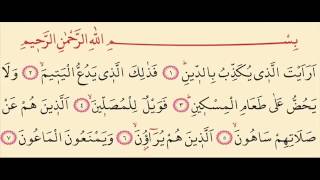 بِسْمِ اللهِ الرَّحْمٰنِ الرَّحِيمِ
اَرَاَيْتَ الَّذ۪ي يُكَذِّبُ بِالدّ۪ينِ ﴿١﴾ فَذٰلِكَ الَّذ۪ي يَدُعُّ الْيَت۪يمَ ﴿٢﴾ وَلَا
يَحُضُّ عَلٰى طَعَامِ الْمِسْك۪ينِ ﴿٣﴾ فَوَيْلٌ لِلْمُصَلّ۪ينَ ﴿٤﴾ اَلَّذ۪ينَ هُمْ عَنْ
صَلَاتِهِمْ سَاهُونَ ﴿٥﴾ اَلَّذ۪ينَ هُمْ يُرَٓاؤُ۫نَ ﴿٦﴾ وَيَمْنَعُونَ الْمَاعُونَ ﴿٧﴾